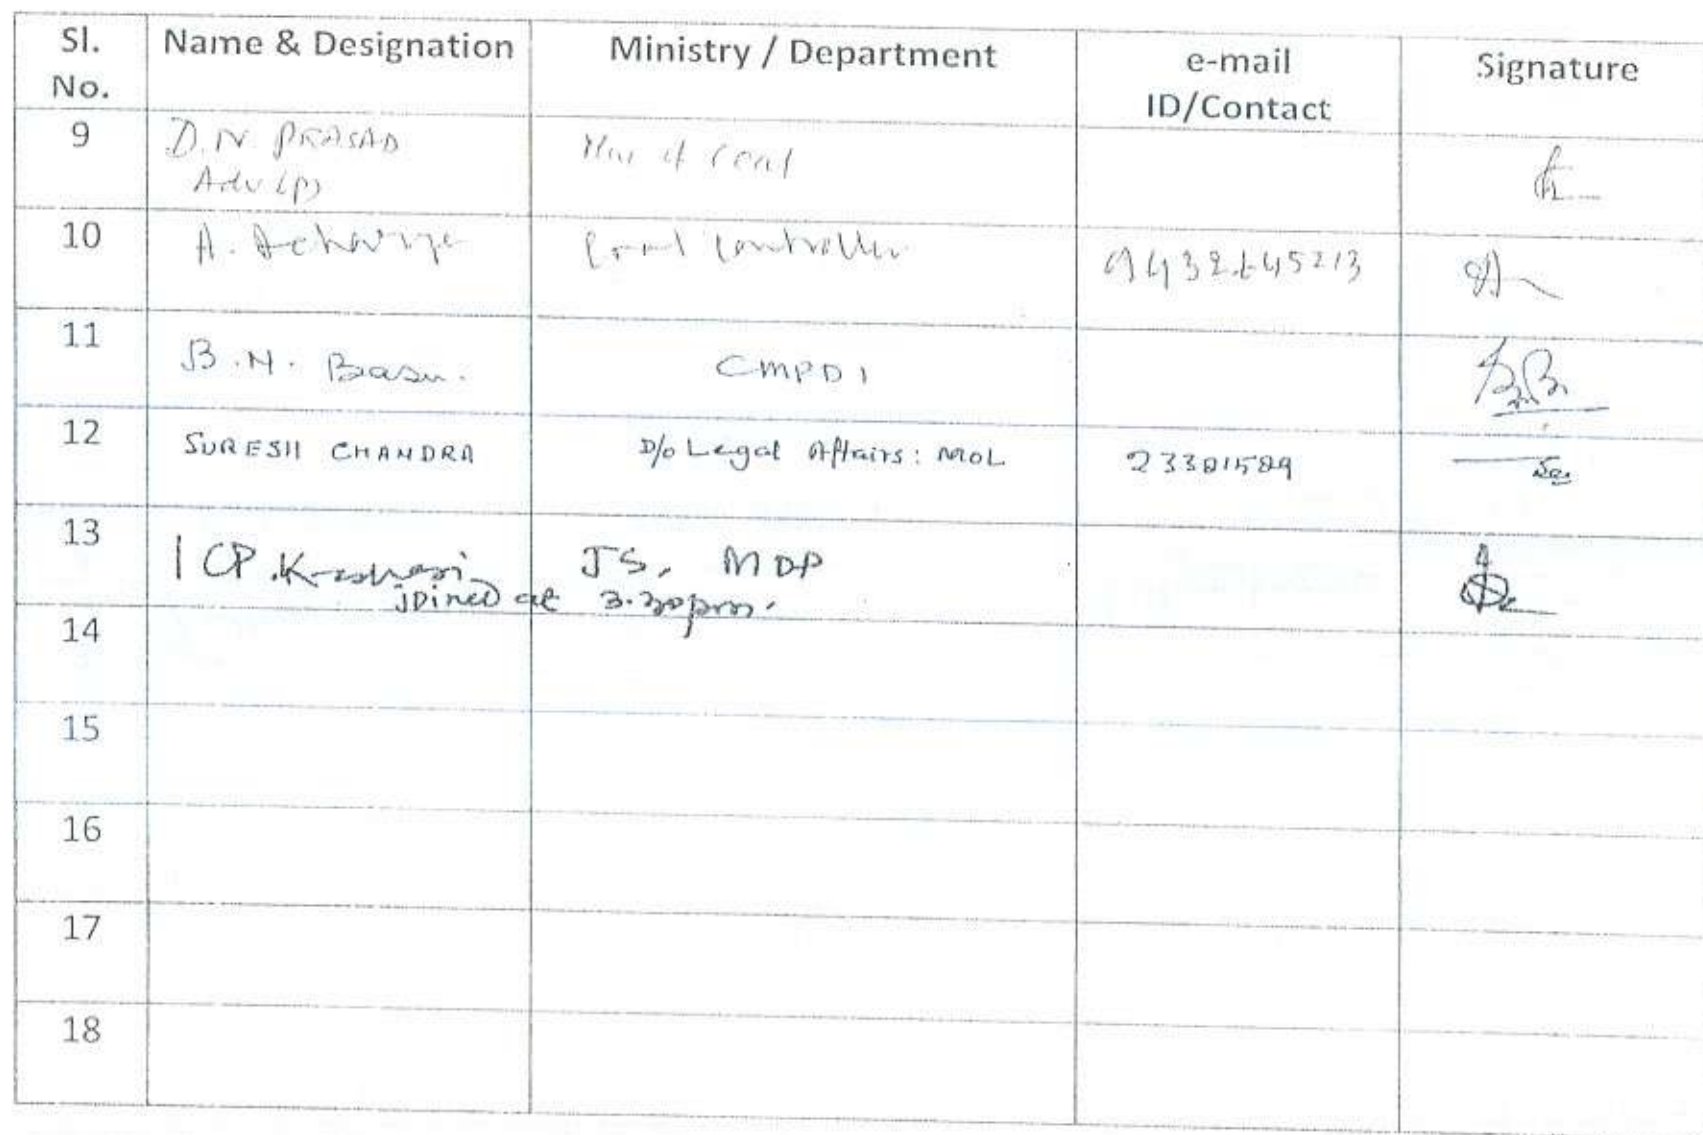 Sl. No. Name & Designation Ministry / Department e-mail ID/Contact Signature
9 D.N PRASAD Adv (P) Min of Coal
10 A. Acharya Coal Controller
11 B.N. Basu. CMPDI
12 SURESH CHANDRA D/o Legal Affairs: MOL
13 JS, MDP
joined at 3.30pm.
14
15
16
17
18